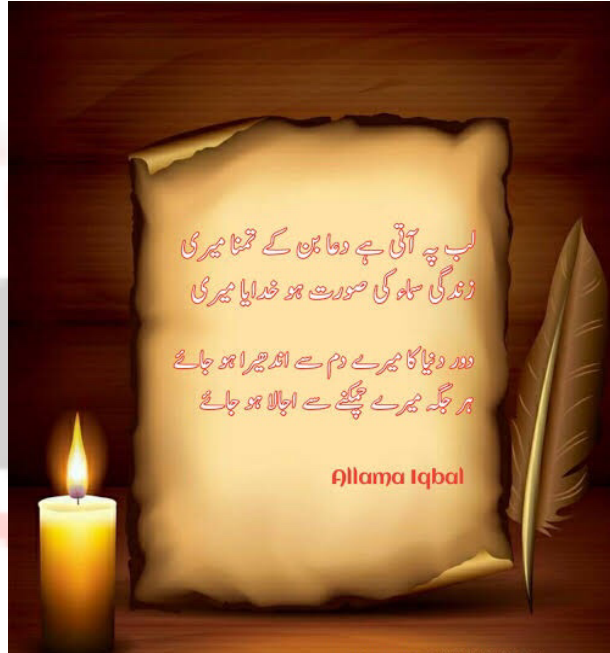 لب پہ آتی ہے دعا بن کے تمنا میری
زندگی سماء کی صورت ہو خدایا میری
دور دنیا کا میرے دم سے اندھیرا ہو جائے
ہر جگہ میرے چمکنے سے اجالا ہو جائے
Allama Iqbal